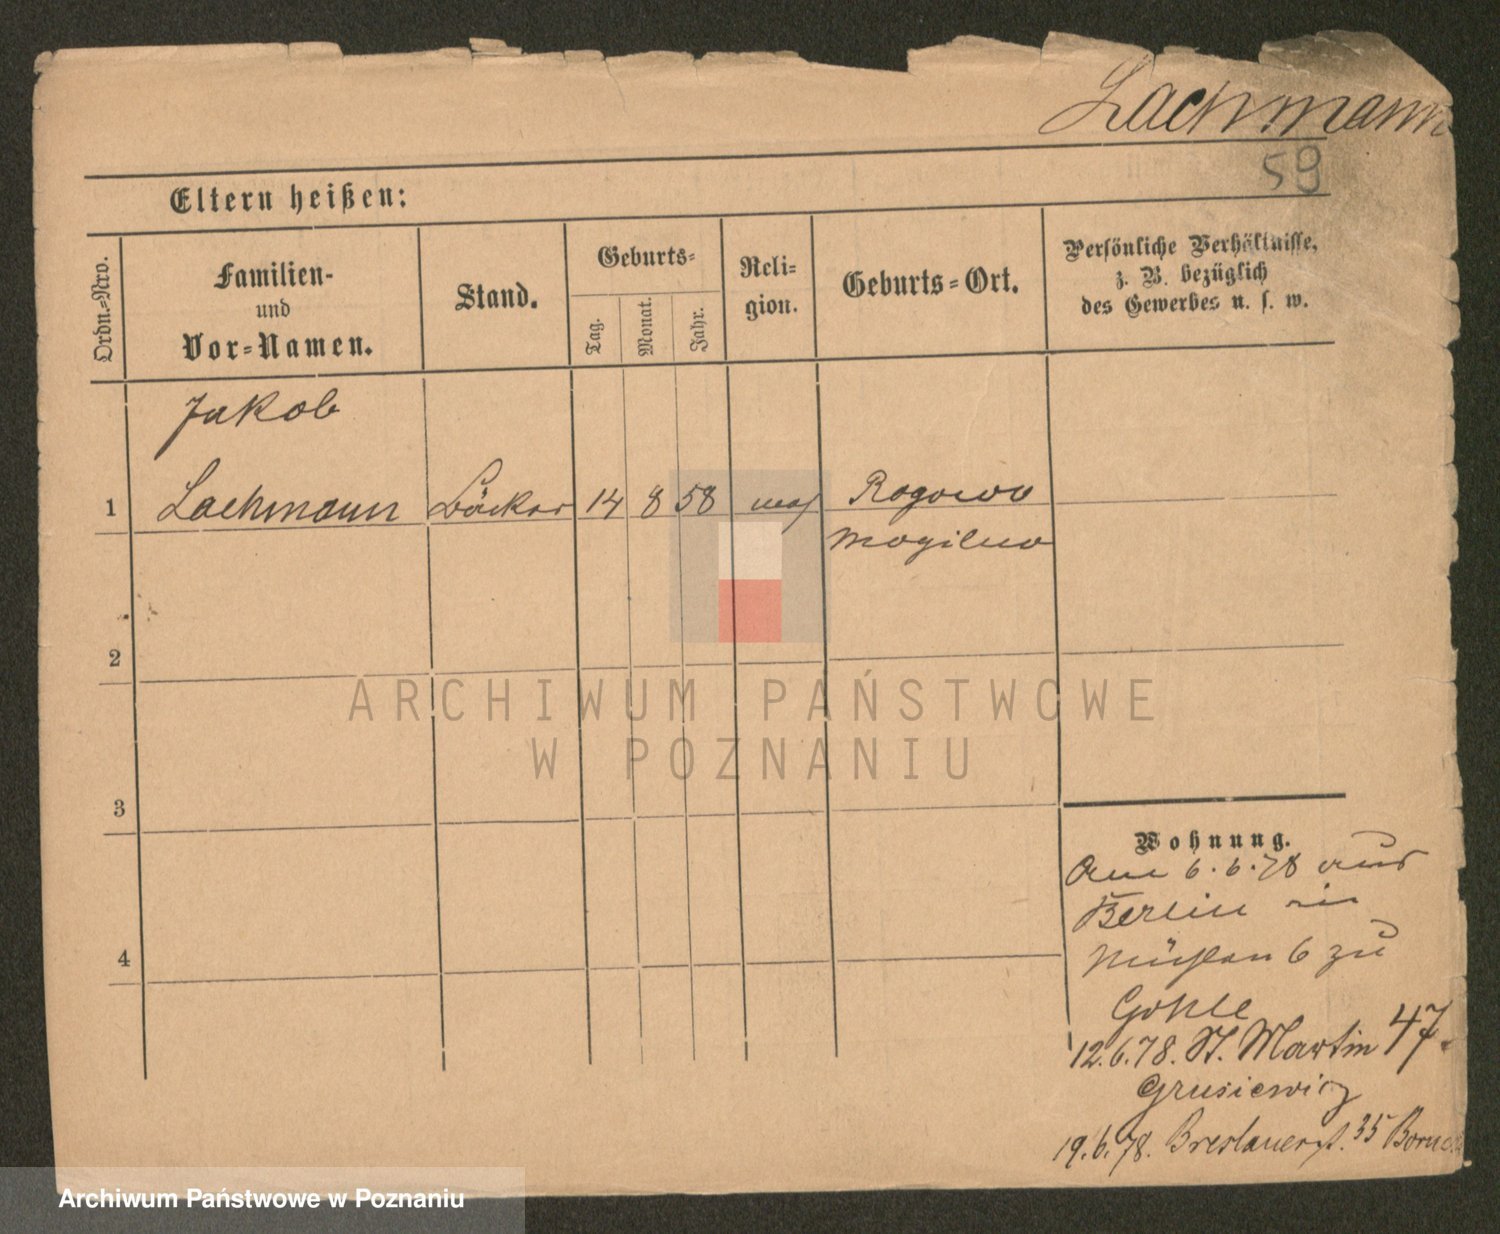 Lachmann
59
Eltern heißen:
Ordn.=Nro.
Familien-
und
Vor=Namen.
Stand.
Geburts=
Tag.
Monat.
Jahr.
Reli=
gion.
Geburts=Ort.
Persönliche Verhältnisse,
z. B. bezüglich
des Gewerbes u. s. w.
Jakob
1 Lachmann Bäcker 14 8 58 mos Rogowo
Mogilno
2
3
4
Wohnung.
Am 6.6.78 aus
Berlin in
Mühlen 6 zu
Gohle
12.6.78. St. Martin 47.
Grusiewicz
19.6.78. Breslauerst. 35
ARCHIWUM PAŃSTWOWE
W POZNANIU
Archiwum Państwowe w Poznaniu